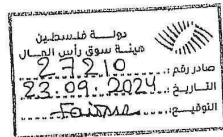 دولة فلسطين
هيئة سوق رأس المال
صادر رقم: 27210
التاريخ: 23.09.2024
التوقيع: